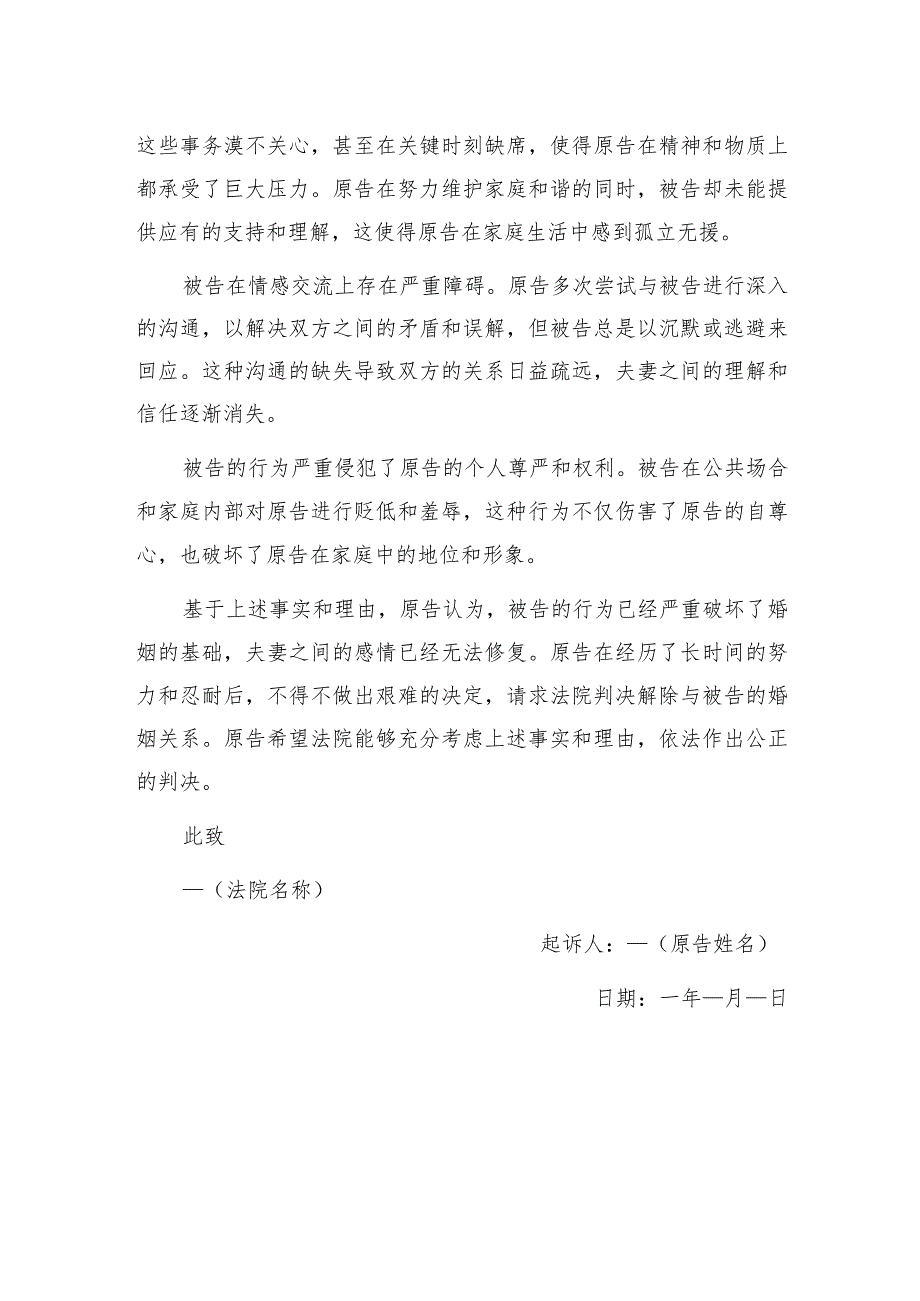 这些事务漠不关心，甚至在关键时刻缺席，使得原告在精神和物质上
都承受了巨大压力。原告在努力维护家庭和谐的同时，被告却未能提
供应有的支持和理解，这使得原告在家庭生活中感到孤立无援。
被告在情感交流上存在严重障碍。原告多次尝试与被告进行深入
的沟通，以解决双方之间的矛盾和误解，但被告总是以沉默或逃避来
回应。这种沟通的缺失导致双方的关系日益疏远，夫妻之间的理解和
信任逐渐消失。
被告的行为严重侵犯了原告的个人尊严和权利。被告在公共场合
和家庭内部对原告进行贬低和羞辱，这种行为不仅伤害了原告的自尊
心，也破坏了原告在家庭中的地位和形象。
基于上述事实和理由，原告认为，被告的行为已经严重破坏了婚
姻的基础，夫妻之间的感情已经无法修复。原告在经历了长时间的努
力和忍耐后，不得不做出艰难的决定，请求法院判决解除与被告的婚
姻关系。原告希望法院能够充分考虑上述事实和理由，依法作出公正
的判决。
此致
—（法院名称）
起诉人：—（原告姓名）
日期：一年—月—日